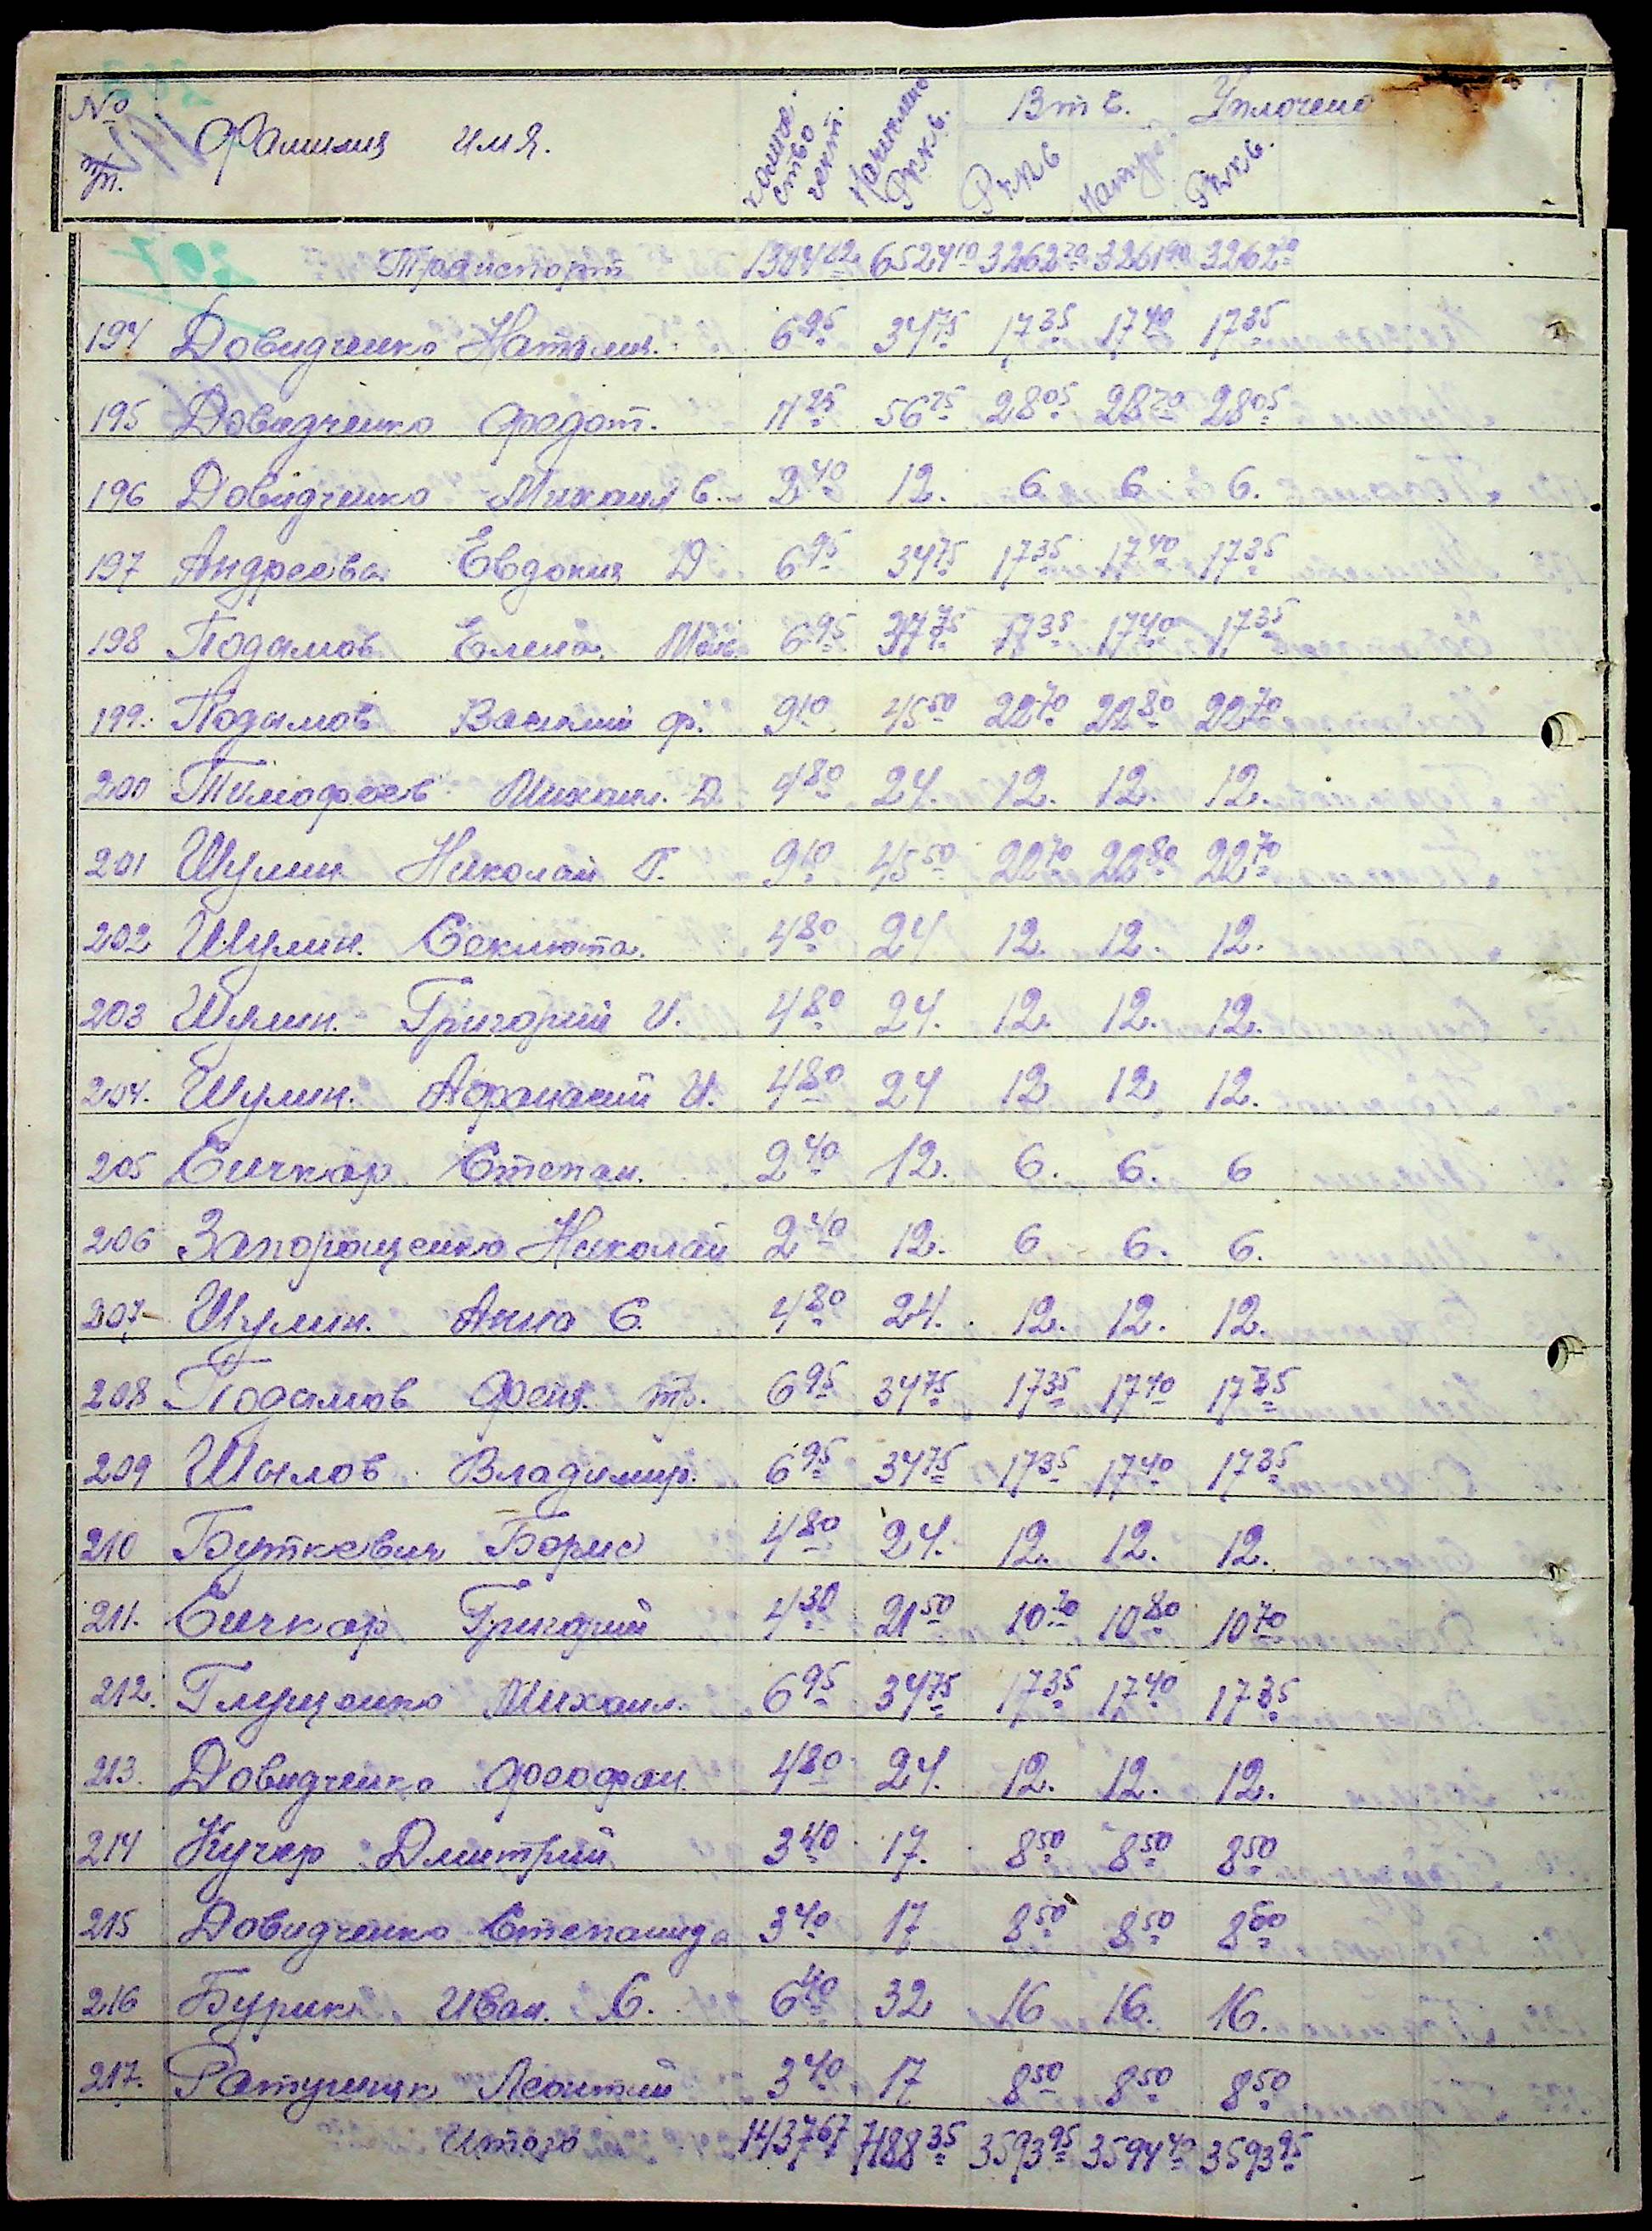 № п/п. Фамилия имя. Количество гект. Начислено Рккв. В т ч. Уплочено
Рккв Натур Рккв.
Транспорт 6524 10 3262 20 3261 90 3262 20
194 Довидченко Наталия. 6 95 34 75 17 35 17 40 17 35
195 Довидченко Федот. 11 25 56 75 28 05 28 70 28 05
196 Довидченко Михаил С. 2 40 12. 6 6 6.
197 Андреева Евдокия Д 6 95 34 75 17 35 17 40 17 35
198 Подымов Елена 6 95 34 75 17 35 17 40 17 35
199. Подымов Василий Ф. 9 10 45 50 22 70 22 80 22 70
200 Тимофеев Михаил. Д 4 80 24. 12. 12. 12.
201 Шулин Николай Г. 9 10 45 50 22 70 22 80 22 70
202 Шулин. Секлюта. 4 80 24 12. 12. 12.
203 Шулин. Григорий И. 4 80 24. 12. 12. 12.
204. Шулин. Афанасий И. 4 80 24 12 12 12.
205 Сичкар Степан. 2 40 12. 6. 6. 6
206 Запорощенко Николай 2 40 12. 6 6. 6.
207 Шулин. Анна С. 4 80 24. 12. 12. 12.
208 Подымов Феня тр. 6 95 34 75 17 35 17 40 17 35
209 Шылов Владимир. 6 95 34 75 17 35 17 40 17 35
210 Буткевич Борис 4 80 24. 12. 12. 12.
211. Сичкар Григорий 4 30 21 50 10 70 10 80 10 70
212. Глущенко Михаил. 6 95 34 75 17 35 17 40 17 35
213. Довидченко Феофан 4 80 24. 12. 12. 12.
214 Кучер Дмитрий 3 40 17. 8 50 8 50 8 50
215 Довидченко Степанида 3 40 17 8 50 8 50 8 50
216 Бурик Иван. С. 6 40 32 16 16. 16.
217. Ратушняк Леонтий 3 40 17 8 50 8 50 8 50
Итого 1437 67 7188 35 3593 95 3594 40 3593 95